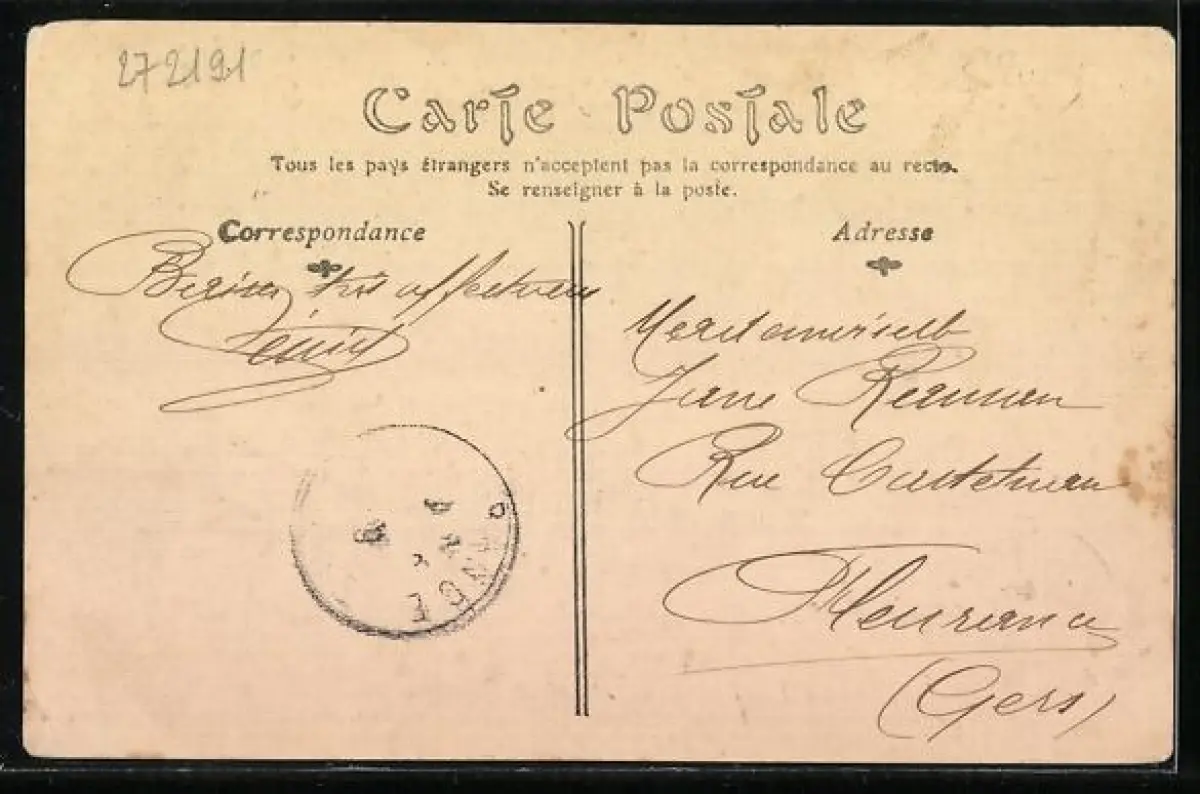 272191
Carte Postale
Tous les pays étrangers n'acceptent pas la correspondance au recto.
Se renseigner à la poste.
Correspondance
Adresse
très affectueux
Mademoiselle
Jane
Rue Castelnau
Fleurance
(Gers)